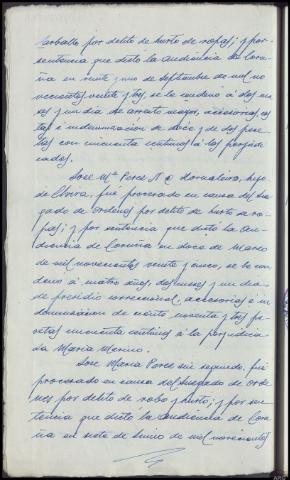 Carballo por delito de hurto de ropas; y por
sentencia que dictó la Audiencia de Coru-
ña en veinte y uno de Septiembre de mil no-
vecientos veinte y tres, se le condenó á dos me-
ses y un dia de arresto mayor, accesorias, cos-
tas é indemnizacion de doce y de dos pese-
tas con cincuenta centimos á los perjudi-
cados.
Jose Mª Perez N. @ Jornalero, hijo
de Elvira, fué procesado en causa del Juz-
gado de Ordenes por delito de hurto de ro-
pas; y por sentencia que dictó la Au-
diencia de Coruña en doce de Marzo
de mil novecientos veinte y cinco, se le con-
denó á cuatro años, dos meses y un dia
de presidio correccional, accesorias é in-
demnizacion de ciento noventa y tres pe-
setas cincuenta centimos á la perjudica-
da Maria Marino.
Jose Maria Perez sin segundo, fué
procesado en causa del Juzgado de Orde-
nes por delito de robo y hurto; y por sen-
tencia que dictó la Audiencia de Coru-
ña en siete de Junio de mil novecientos